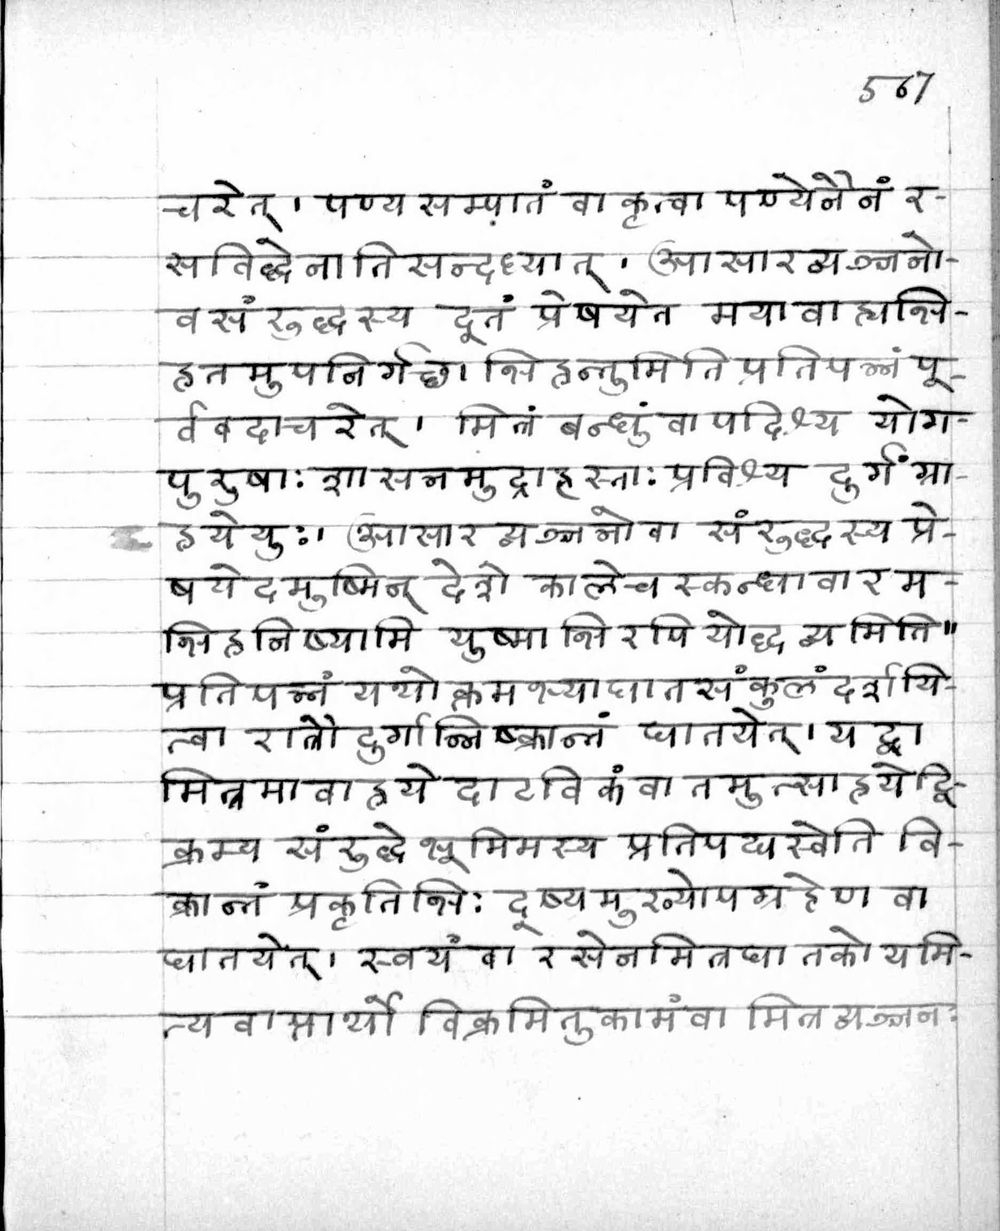 567
चरेत् । पण्यसम्पातं वा कृत्वा पण्येनैनं र-
सविद्धेनातिसन्दध्यात् । आसारव्यञ्जनो-
वसंरुद्धस्य दूतं प्रेषयेत मया वाह्यभि-
हतमुपनिर्गच्छाभिहन्तुमिति प्रतिपन्नं पू-
र्ववदाचरेत् । मित्रं बन्धुं वापदिश्य योग-
पुरुषाः शासनमुद्राहस्ताः प्रविश्य दुर्गं ग्रा-
हयेयुः । आसारव्यञ्जनो वा संरुद्धस्य प्रे-
षयेदमुष्मिन् देशे काले च स्कन्धावारम-
भिहनिष्यामि युष्माभिरपि योद्धव्यमिति ॥
प्रतिपन्नं यथोक्तमभ्याघातसंकुलं दर्शयि-
त्वा रात्रौ दुर्गान्निष्क्रान्तं घातयेत् । यद्वा
मित्रमावाहयेदाटविकं वा तमुत्साहयेद्वि-
क्रम्य संरुद्धे भूमिमस्य प्रतिपद्यस्वेति वि-
क्रान्तं प्रकृतिभिः दूष्यमुख्योपग्रहेण वा
घातयेत् । स्वयं वा रसेन मित्रघातकोयमि-
त्यवाप्तार्थो विक्रमितुकामं वा मित्रव्यञ्जनः